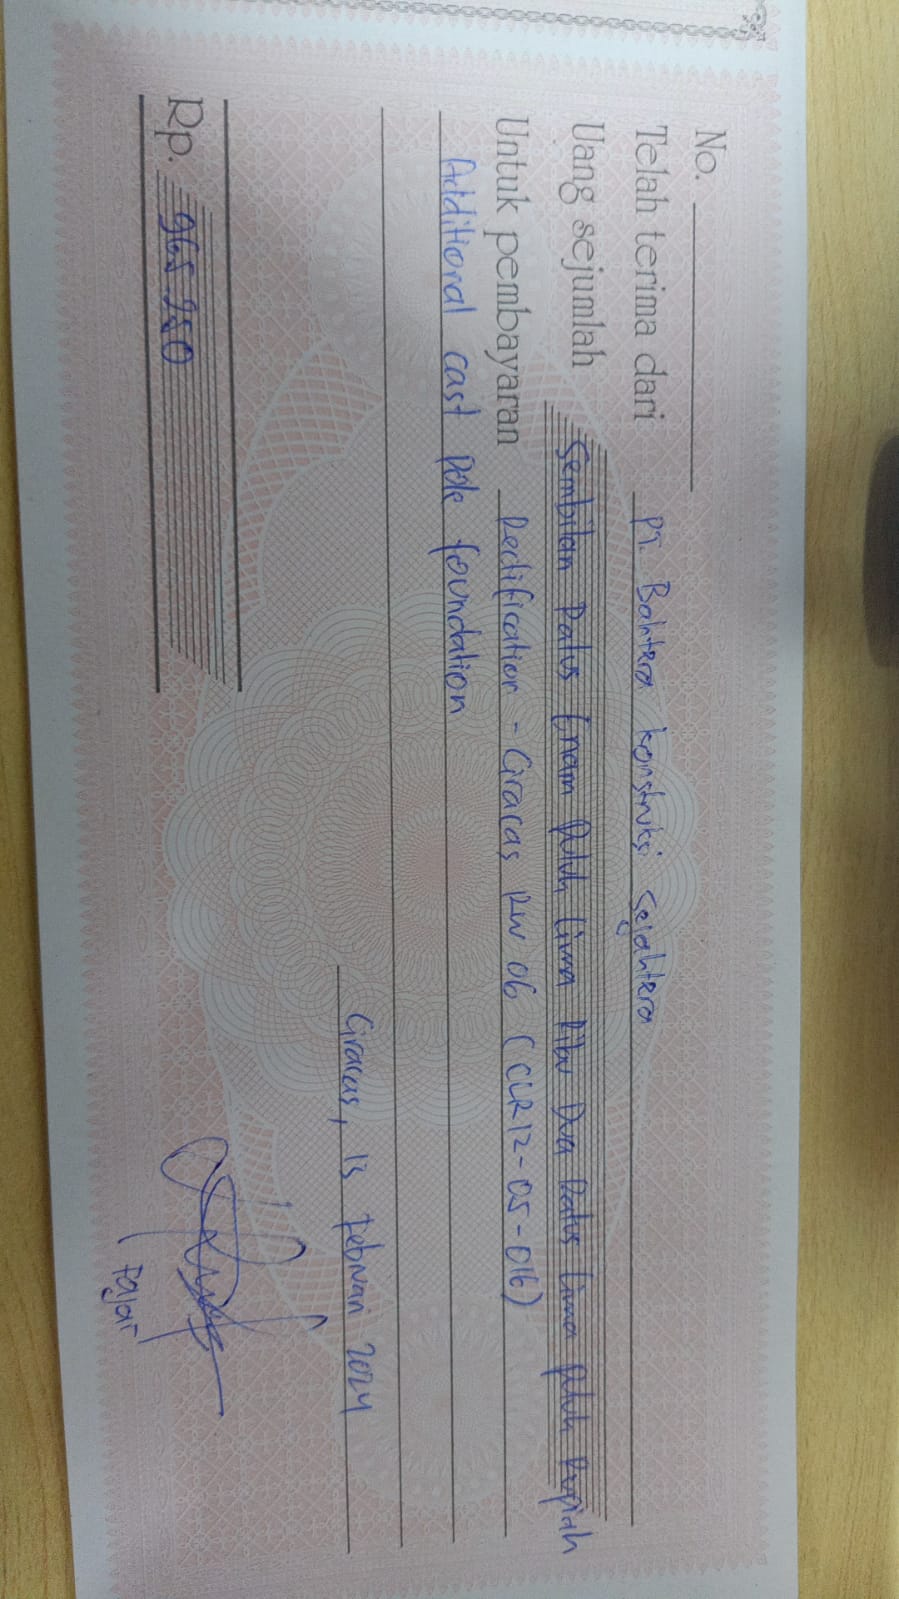 No.
Telah terima dari PT. Bahtera konstruksi Sejahtera
Uang sejumlah Sembilan Ratus Enam Puluh Lima Ribu Dua Ratus Lima Puluh Rupiah
Untuk pembayaran Rectification - Ciracas RW 06 (CLR12-05-016)
Additional cast Pole foundation
Ciracas, 15 Februari 2024
Rp. 965.250
Fajar